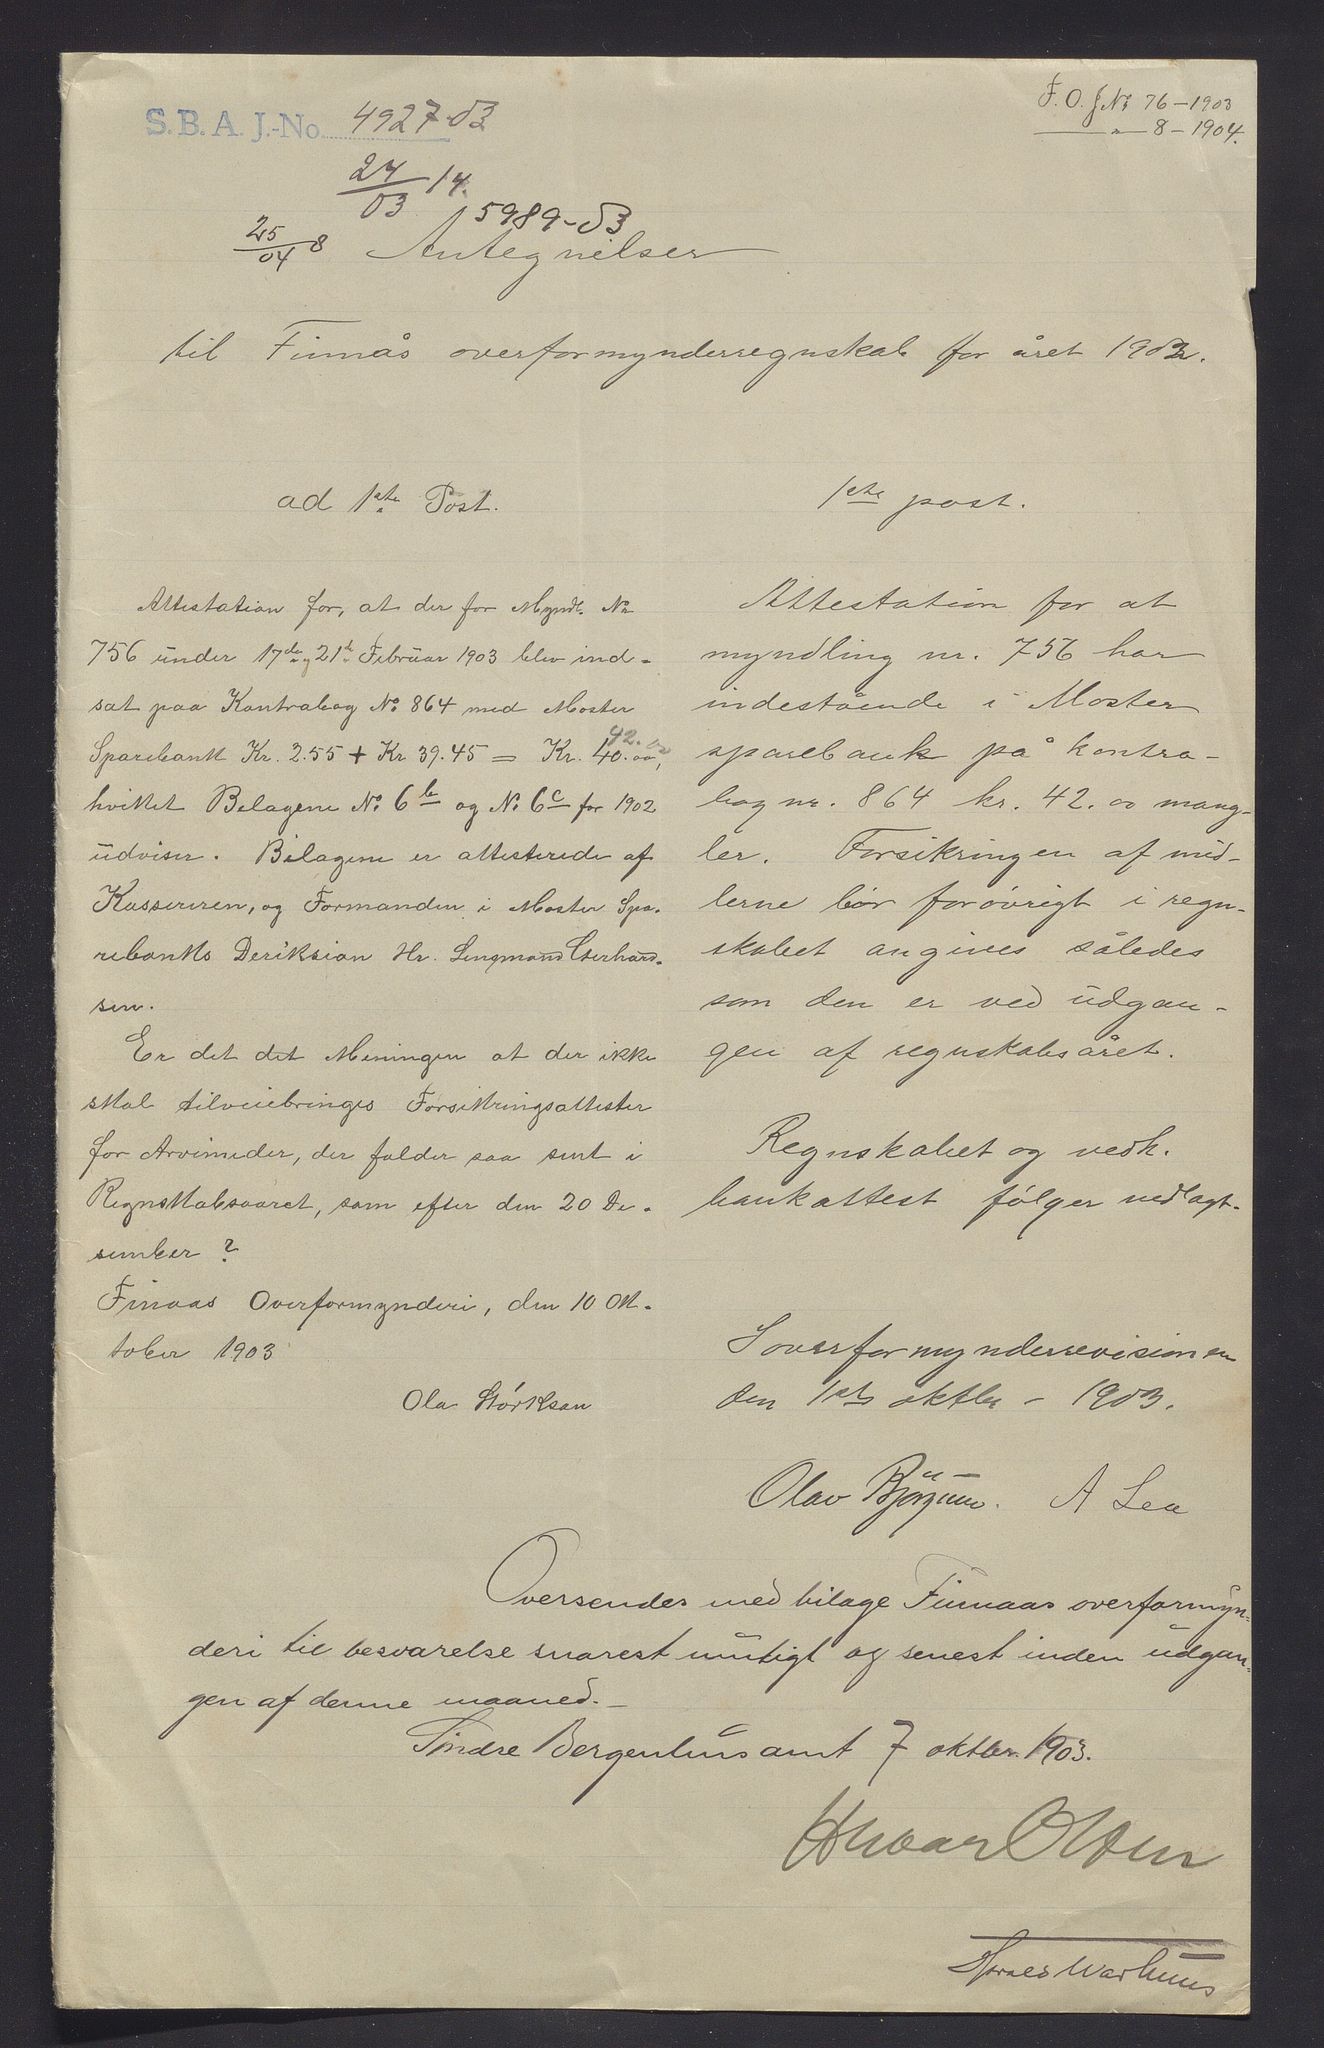 S.B.A. J.-No. 4927-03
F. O. J No 76 - 1903
" 8 - 1904.
24/03 14.
15989-03
25/04 8
Antegnelser
til Finnås overformynderregnskab for året 1902.
ad 1ste Post.
Attestation for, at der for Myndl. No
756 under 17de og 21de Februar 1903 blev ind-
sat paa Kontrabog No 864 med Moster
Sparebank Kr. 2.55 + Kr 39.45 = Kr. 40.00, 42.00
hvilket Bilagene No 6b og No 6c for 1902
udviser. Bilagene er attesterede af
Kassereren, og Formanden i Moster Spa-
rebanks Dirèksion Hr. Engmand Everhard-
sen.
Er det det Meningen at der ikke
skal tilveiebringes Forsikringsattester
for Arvemidler, der falder saa sent i
Regnskabsaaret, som efter den 20 De-
sember?
Finaas Overformynderi, den 10 Ok-
tober 1903
Ola Størkson
1ste post.
Attestation for at
myndling nr. 756 har
indestående i Moster
sparebank på kontra-
bog nr. 864 kr. 42.00 mang-
ler. Forsikringen af mid-
lerne bör forövrigt i regn-
skabet angives således
som den er ved udgan-
gen af regnskabsåret.
Regnskabet og vedk.
bankattest følger vedlagt.
I overformynderrevisionen
den 1ste oktbr - 1903.
Olav A Lea
Oversendes med bilage Finnaas overformyn-
deri til besvarelse snarest muligt og senest inden udgan-
gen af denne maaned. -
Søndre Bergenhus amt 7 oktbr. 1903.
Hroar Olsen
Warhuus